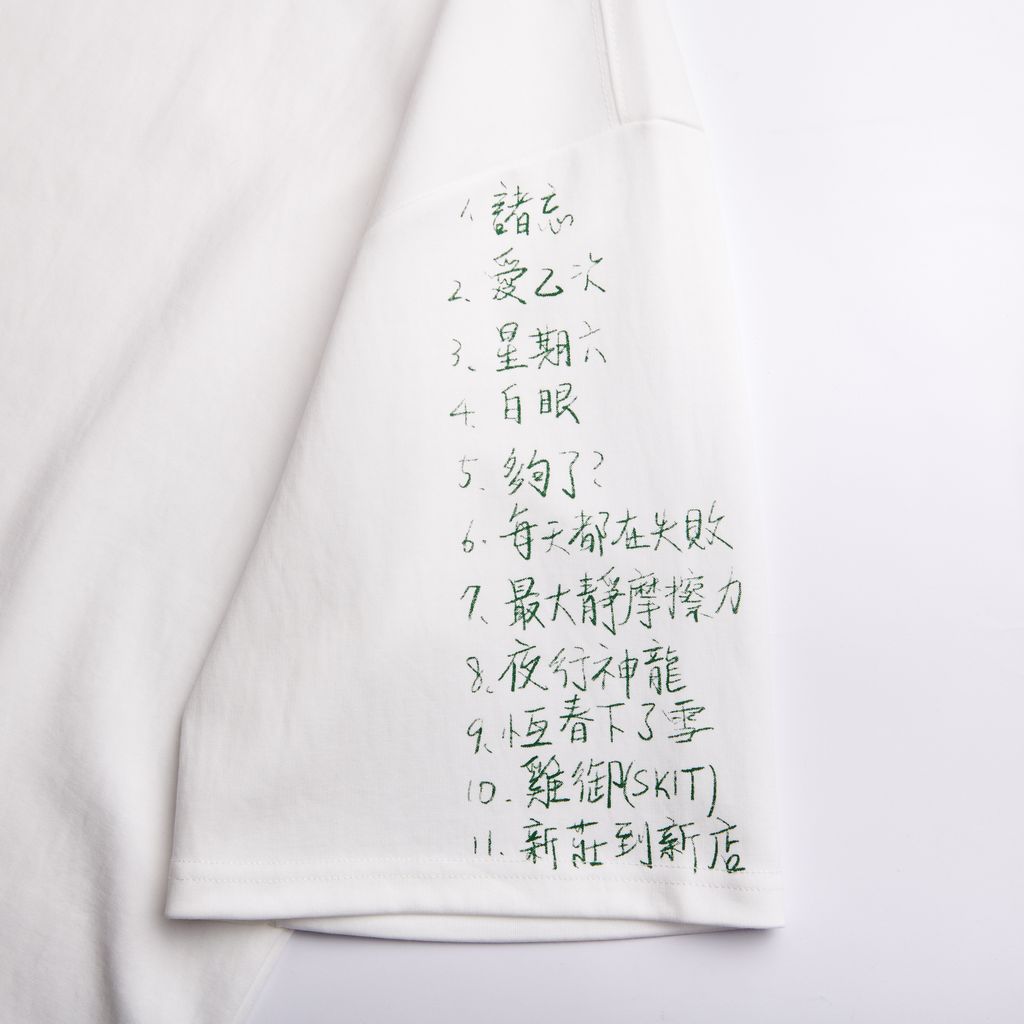 1. 諸忘
2. 愛乙次
3、星期六
4. 白眼
5、夠了?
6. 每天都在失敗
7、最大靜摩擦力
8. 夜行神龍
9、恆春下了雪
10. 雞御(SKIT)
11. 新莊到新店